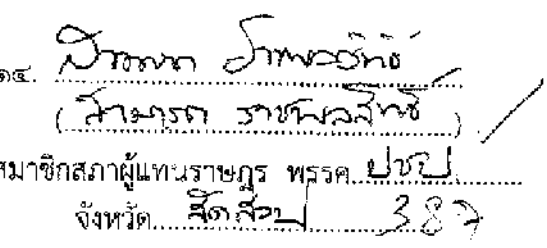 ๑๔. สามารถ ราชพลสิทธิ์
(สามารถ ราชพลสิทธิ์)
สมาชิกสภาผู้แทนราษฎร พรรค ปชป.
จังหวัด สัดส่วน 387